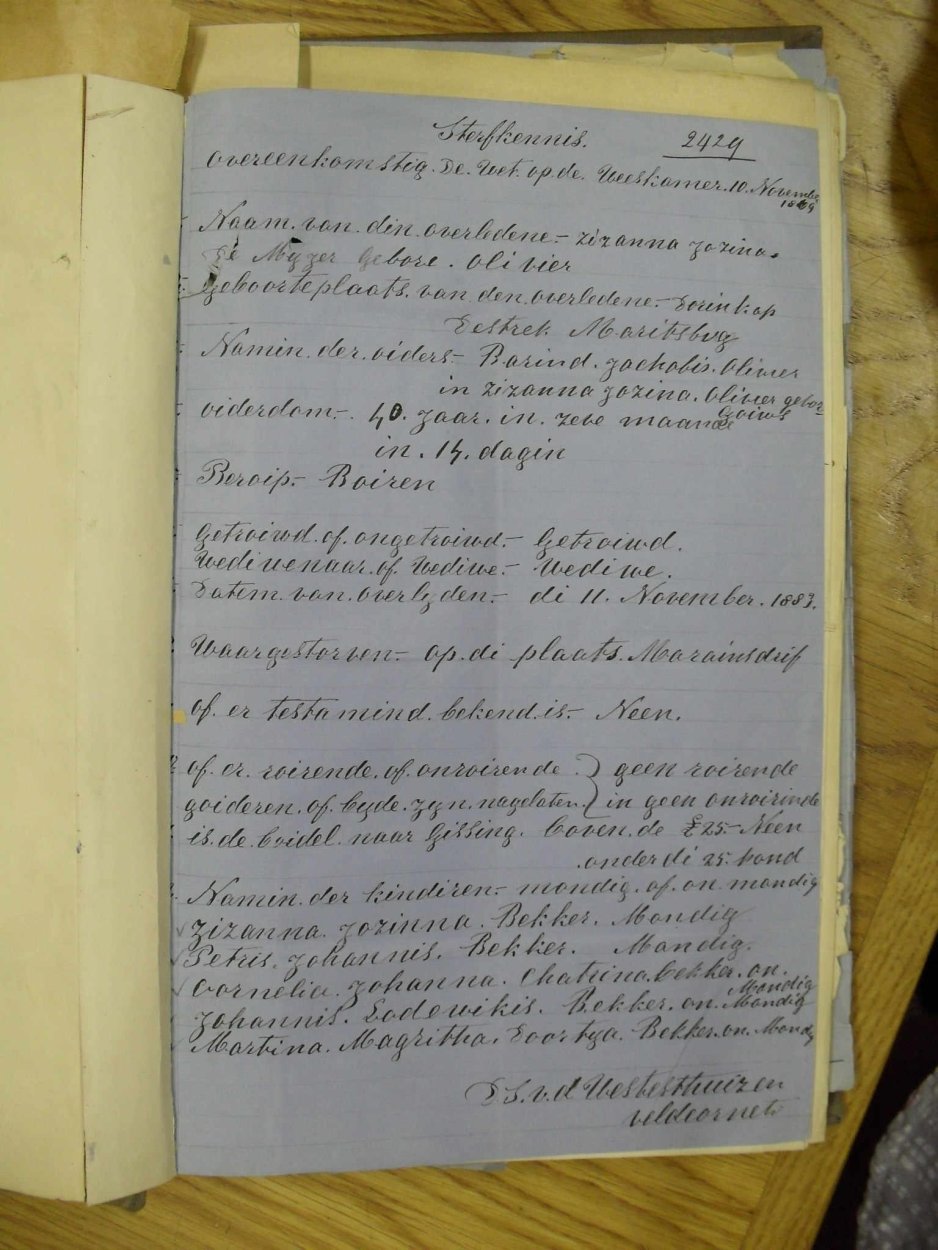 Sterfkennis. 2429
overeenkomstig. De. Wet. op. de. Weeskamer. 10. November
1869
Naam. van. din. overledene.- zizanna zozina.
De Myzer Gebore. Olivier
Geboorteplaats. van den. overledene.- Dorinkop
Destrek Maritsbug
Namin. der. oiders.- Barind. Jachobis. Olivier
in zizanna zozina. Olivier gebor
oiderdom-. 40. Jaar. in. zeve maande
in. 14. dagin
Beroip.- Boiren
Getroiwd. of. ongetroiwd.- Getroiwd.
Wediwenaar. of. Wediwe.- Wediwe.
Datim. van. overlyden.- di 11. November. 1883.
Waargestorven.- op. di plaats. Marainsdrif
of. er testamind. bekend. is.- Neen.
of. er. roirende. of. onroirende. } geen roirende
goideren. of. byde. zyn. nagelaten. } in geen onroirinde
is. de. boidel. naar Gissing. boven. de £25.- Neen
onder di 25. Pond
Namin. der kindiren.- mondig. of. on. mondig
zizanna. Jozinna. Bekker. Mondig
Petris. Johannis. Bekker. Mondig.
Cornelia. Johanna. Chatrina. Bekker. on.
Mondig
Johannis. Lodewikis. Bekker. on. Mondig
Martina. Magritha. Doortya. Bekker. on. Mondig
v. d Westesthuizen
veldcornet